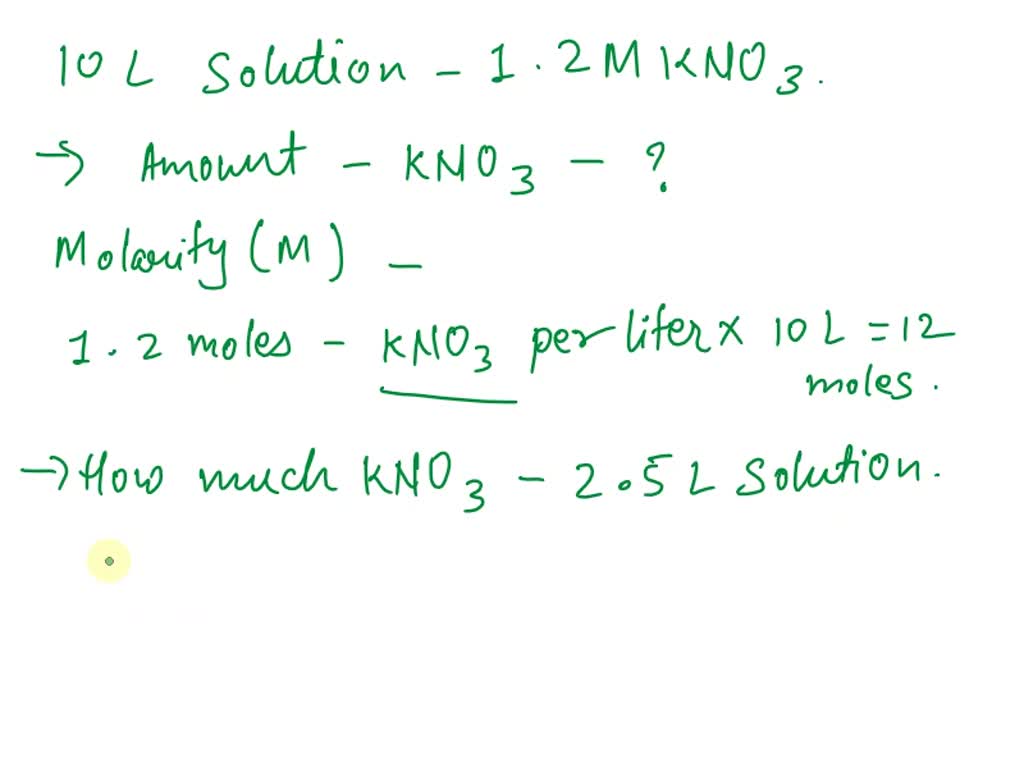 10 L Solution - 1.2 M KNO3.
→ Amount - KNO3 - ?
Molarity (M) -
1.2 moles - KNO3 per liter x 10 L = 12
moles.
→ How much KNO3 - 2.5 L Solution.